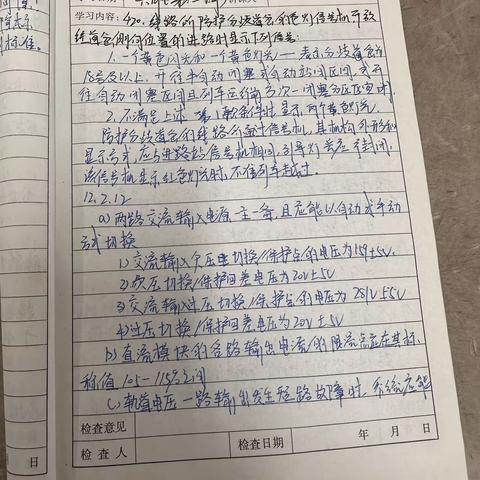 学习内容：430. 线路所防护分歧道岔的色灯信号机开放
经道岔侧向位置的进路时显示下列信号：
1. 一个黄色闪光和一个黄色灯光——表示分歧道岔为
18号及以上，开往半自动闭塞或自动站间区间，或开
往自动闭塞区间且列车运行前方次一闭塞分区空闲。
2. 不满足上述第1款条件时，显示两个黄色灯光。
防护分歧道岔的线路所通过信号机，其机构外形和
显示方式，应与进路站信号机相同，引导灯光应予封闭。
该信号机显示红色灯光时，不准列车越过。
12.2.12
a) 两路交流输入电源一主一备，且应能以自动或手动
方式切换
1) 交流输入欠压切换/保护点的电压为159±5V
2) 欠压切换/保护回差电压为20V±5V
3) 交流输入过压切换/保护点的电压为281V±5V
4) 过压切换/保护回差电压为20V±5V
b) 直流模块的各路输出电流的限流点应在其标
称值105-115%之间
c) 轨道电压一路输出发生短路故障时，系统应能
检查意见
检 查 人 检查日期 年 月 日
日